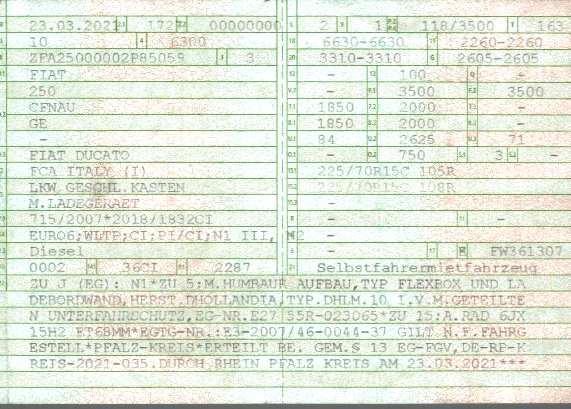 23.03.2021 172 00000000 2 1 118/3500 163
10 6300 6630-6630 2260-2260
ZFA25000002P85059 3 3310-3310 2605-2605
FIAT - 100 -
250 - 3500 3500
CFNAU 1850 2000 -
GE 1850 2000 -
- 84 2625 71
FIAT DUCATO - 750 3 -
FCA ITALY (I) 225/70R15C 105R
LKW GESCHL.KASTEN 225/70R15C 108R
M.LADEGERAET -
715/2007*2018/1832CI - -
EURO6;WLTP;CI;PI/CI;N1 III, N2 -
Diesel - FW361307
0002 36CI 2287 Selbstfahrermietfahrzeug
ZU J (EG): N1*ZU 5:M.HUMBAUR AUFBAU,TYP FLEXBOX UND LA
DEBORDWAND,HERST.DHOLLANDIA,TYP.DHLM.10 I.V.M.GETEILTE
N UNTERFAHRSCHUTZ,EG-NR.E27 55R-023065*ZU 15:A.RAD 6JX
15H2 ET68MM*EGTG-NR.:E3-2007/46-0044-37 GILT N.F.FAHRG
ESTELL*PFALZ-KREIS*ERTEILT BE. GEM.§ 13 EG-FGV,DE-RP-K
REIS-2021-035.DURCH RHEIN PFALZ KREIS AM 23.03.2021***